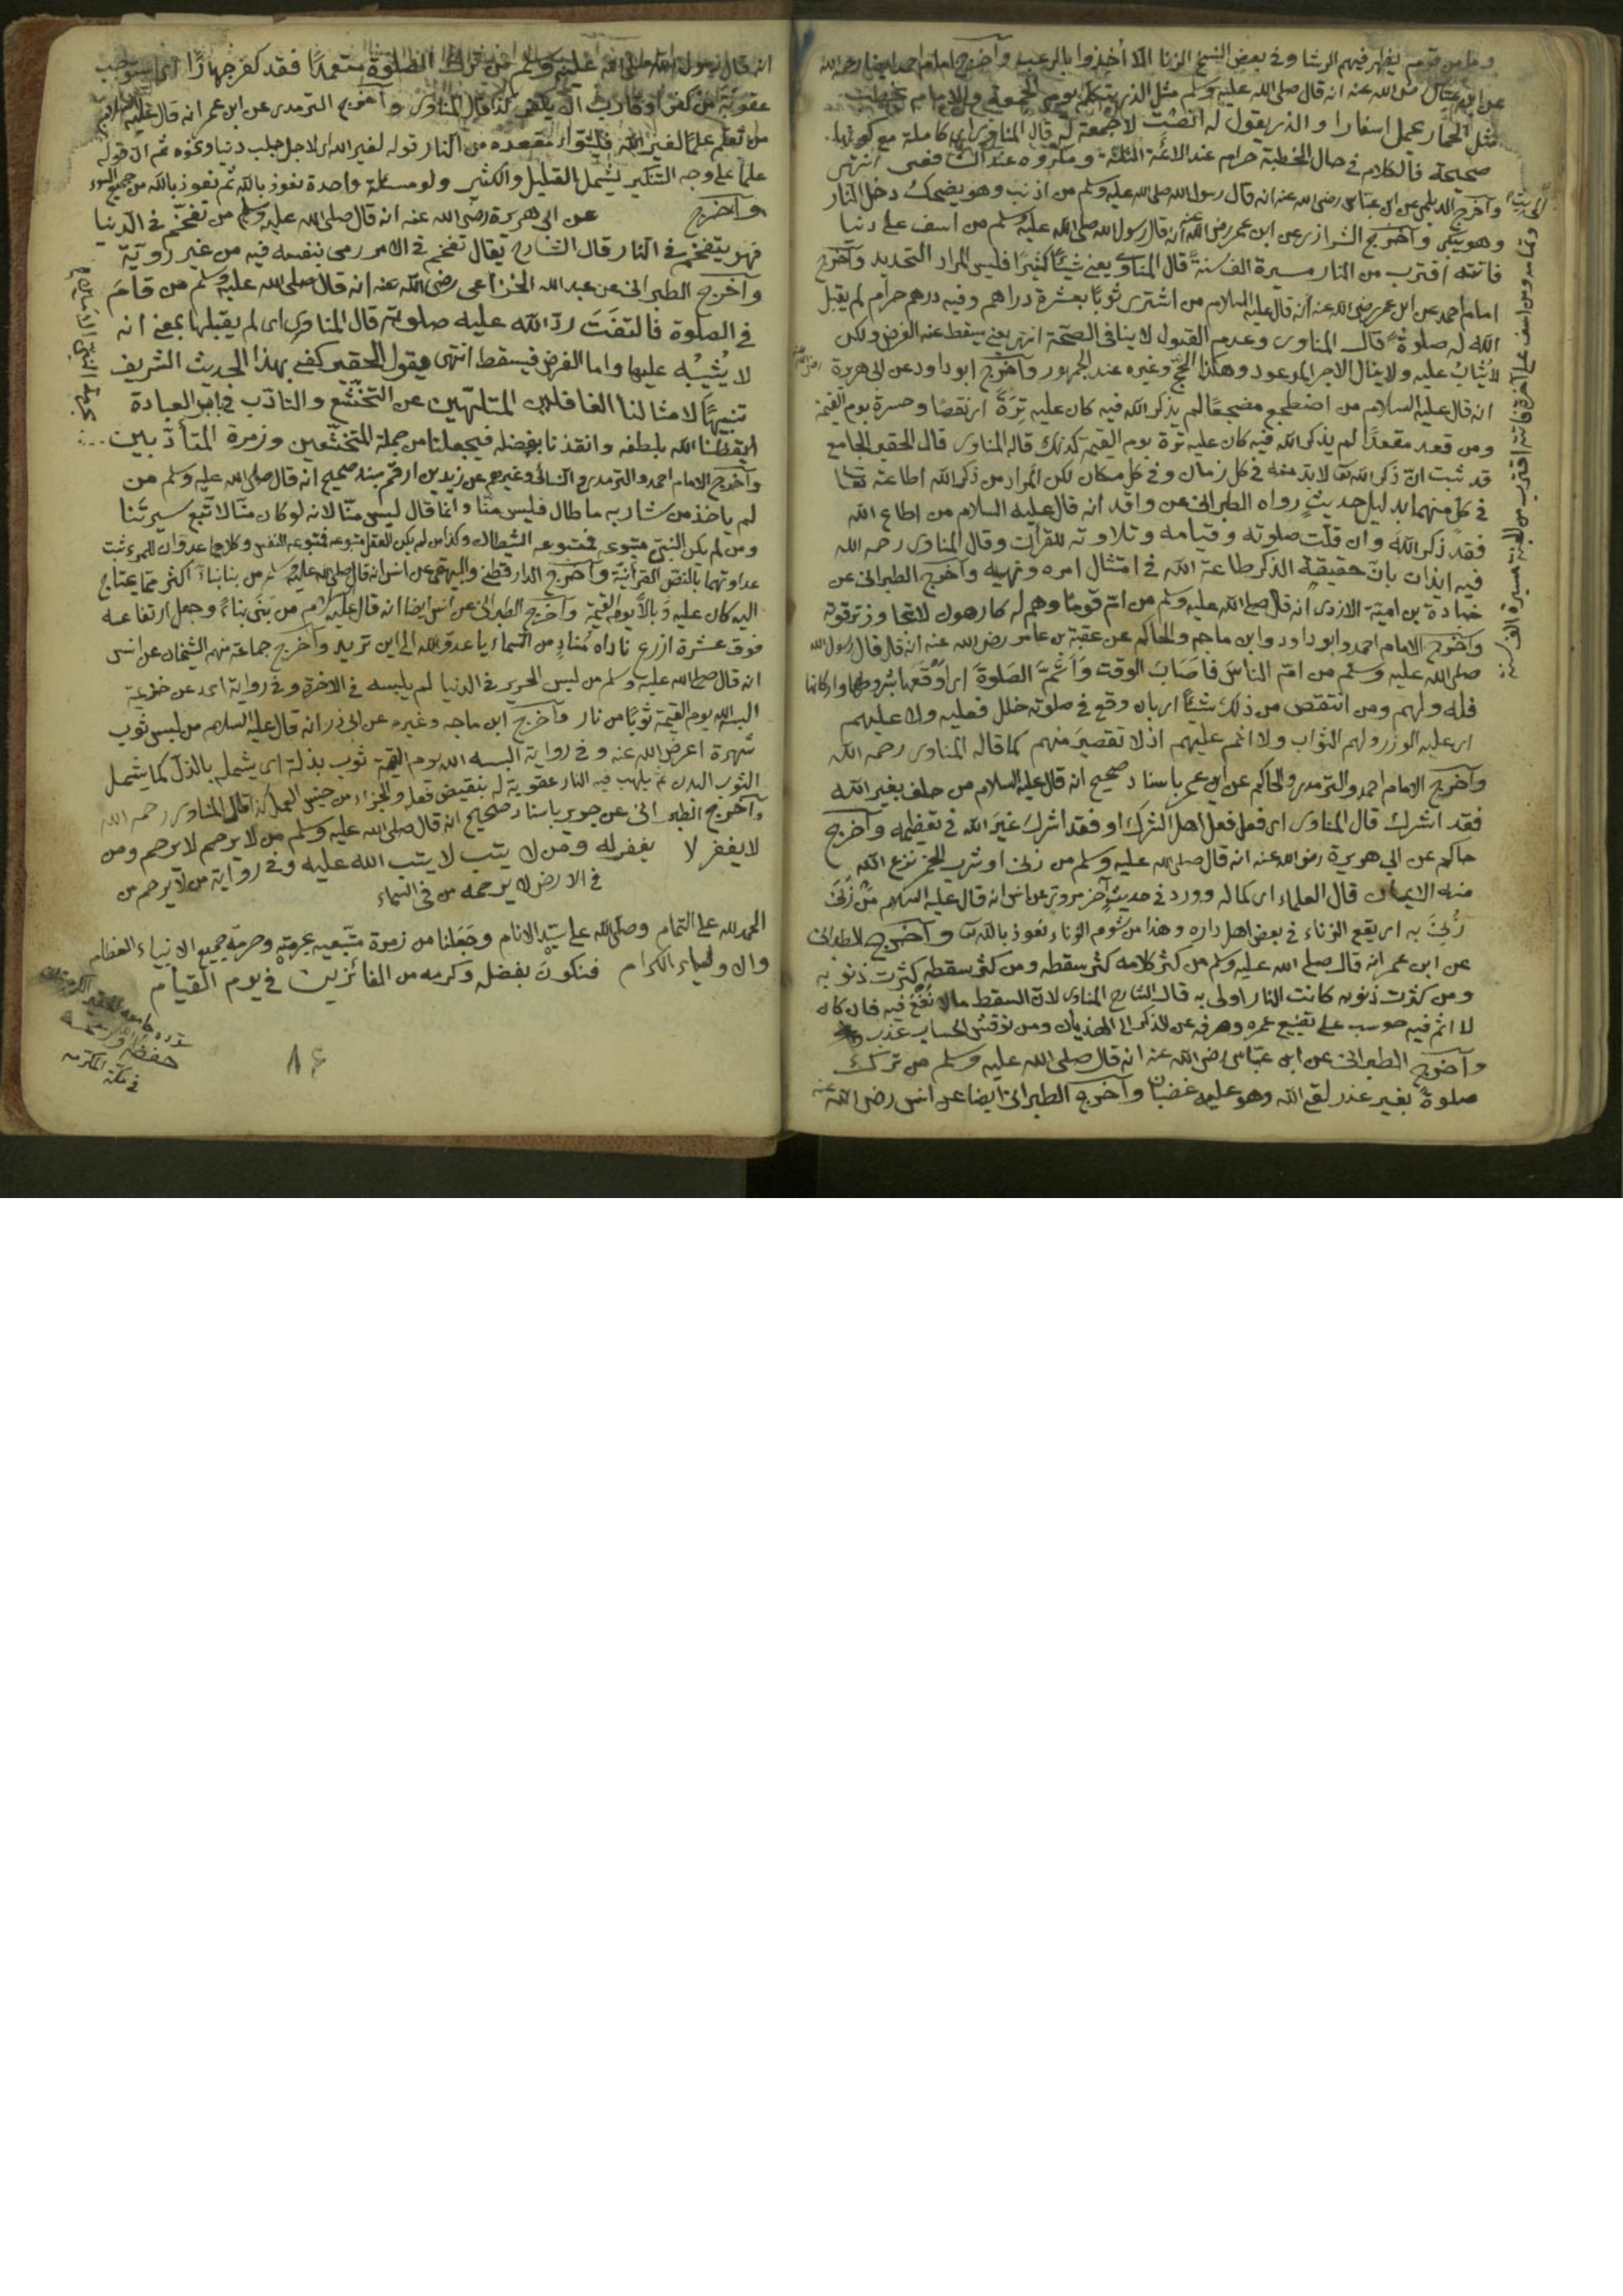 وما من قوم يظهر فيهم الرشا وفى بعض النسخ الزنا الا أخذوا بالرعب وآخرج امام احمد ايضا رحمه الله
عن ابن عباس رضى الله عنه انه قال صلى الله عليه وسلم مثل الذى يتكلم يوم الجمعة والامام يخطب
مثل الحمار يحمل اسفارا والذى يقول له انصت لا جمعة له قال المناوى اى كاملة مع كونها
صحيحة فالكلام فى حال الخطبة حرام عند الائمة الثلثة ومكروه عند الشافعى انتهى
وآخرج الديلمى عن ابن عباس رضى الله عنه انه قال رسول الله صلى الله عليه وسلم من اذنب وهو يضحك دخل النار
وهو يبكى وآخرج الشرازى عن ابن عمر رضى الله عنه انه قال رسول الله صلى الله عليه وسلم من اسف على دنيا
فاتته اقترب من النار مسيرة الف سنة قال المناوى يعنى شيئا كثيرا فليس المراد التحديد وآخرج
امام احمد عن ابن عمر رضى الله عنه انه قال عليه السلام من اشترى ثوبا بعشرة دراهم وفيه درهم حرام لم يقبل
الله له صلوة قال المناوى وعدم القبول لا ينافى الصحة انتهى يعنى يسقط عنه الفرض ولكن
لا يثاب عليه ولا ينال الاجر الموعود وهكذا الحج وغيره عند الجمهور وآخرج ابو داود عن ابى هريرة
انه قال عليه السلام من اضطجع مضجعا لم يذكر الله فيه كان عليه ترة اى نقصا وحسرة يوم القيمة
ومن قعد مقعدا لم يذكر الله فيه كان عليه ترة يوم القيمة كذلك قاله المناوى قال الحقير الجامع
قد ثبت ان ذكر الله تعا لابد منه فى كل زمان وفى كل مكان لكن المراد من ذكر الله اطاعته تعا
فى كل منهما بدليل حديث رواه الطبرانى عن واقد انه قال عليه السلام من اطاع الله
فقد ذكر الله وان قلت صلوته وقيامه وتلاوته للقرآن وقال المناوى رحمه الله
فيه ايذان بان حقيقة الذكر طاعة الله فى امتثال امره ونهيه وآخرج الطبرانى عن
جنادة بن امية الازدى انه قال صلى الله عليه وسلم من ام قوما وهم له كارهون لا تجاوز ترقوته
وآخرج الامام احمد وابو داود وابن ماجه والحاكم عن عقبة بن عامر رضى الله عنه انه قال قال رسول الله
صلى الله عليه وسلم من ام الناس فاصاب الوقت واتم الصلوة اى اوقعها بشروطها واركانها
فله ولهم ومن انتقص من ذلك شيئا اى بان وقع فى صلوته خلل فعليه ولا عليهم
اى عليه الوزر ولهم الثواب ولا اثم عليهم اذ لا تقصير منهم كما قاله المناوى رحمه الله
وآخرج الامام احمد والترمدى والحاكم عن ابن عمر باسناد صحيح انه قال عليه السلام من حلف بغير الله
فقد اشرك قال المناوى اى فعل فعل اهل الشرك او فقد اشرك غير الله فى تعظيمه وآخرج
حاكم عن ابى هريرة رضى الله عنه انه قال صلى الله عليه وسلم من زنى او شرب الخمر نزع الله
منه الايمان قال العلماء اى كماله وورد فى حديث آخر مروى عن انس انه قال عليه السلام من زنى
زنى به اى يقع الزناء فى بعض اهل داره وهذا من شؤم الزناء نعوذ بالله وآخرج الطبرانى
عن ابن عمر انه قال صلى الله عليه وسلم من كثر كلامه كثر سقطه ومن كثر سقطه كثرت ذنوبه
ومن كثرت ذنوبه كانت النار اولى به قال الشارح المناوى لان السقط ما لا نفع فيه فان كان
لا اثم فيه حوسب على تضييع عمره وصرفه عن الذكر الى الهذيان ومن نوقش الحساب عذب
وآخرج الطبرانى عن ابن عباس رضى الله عنه انه قال صلى الله عليه وسلم من ترك
صلوة بغير عذر لقى الله وهو عليه غضبان وآخرج الطبرانى ايضا عن انس رضى الله عنه
ومن اسف على آخرة فاتته اقترب من الجنة مسيرة الف سنة
انه قال رسول الله صلى الله عليه وسلم من ترك الصلوة متعمدا فقد كفر جهارا اى استوجب
عقوبة من كفر او قارب ان يكفر كذا قال المناوى وآخرج الترمدى عن ابن عمر انه قال عليه السلام
من تعلم علما لغير الله فليتبوأ مقعده من النار قوله لغير الله اى لاجل جلب دنيا ونحوه ثم ان قوله
علما على وجه التنكير يشمل القليل والكثير ولو مسئلة واحدة نعوذ بالله ثم نعوذ بالله من جميع السوء
وآخرج عن ابى هريرة رضى الله عنه انه قال صلى الله عليه وسلم من تقحم فى الدنيا
فهو يتقحم فى النار قال الشارح يقال تقحم فى الامر رمى بنفسه فيه من غير روية
وآخرج الطبرانى عن عبد الله الخزاعى رضى الله عنه انه قال صلى الله عليه وسلم من قام
فى الصلوة فالتفت رد الله عليه صلوته قال المناوى اى لم يقبلها بمعنى انه
لا يثيبه عليها واما الفرض فيسقط انتهى ويقول الحقير كفى بهذا الحديث الشريف
تنبيها لامثالنا الغافلين المتلهين عن التخشع والتادب فى امر العبادة
ايقظنا الله بلطفه وانقذنا بفضله فيجعلنا من جملة المتخشعين وزمرة المتأدبين
وآخرج الامام احمد والترمدى والنسائى وغيرهم عن زيد بن ارقم بسند صحيح انه قال صلى الله عليه وسلم من
لم ياخذ من شاربه ما طال فليس منا وانما قال ليس منا لانه لو كان منا لاتبع سيرتنا
ومن لم يكن النبى متبوعه فمتبوعه الشيطان وكذا من لم يكن العقل متبوعه فمتبوعه النفس وكلاهما عدوان للمرء ثبت
عداوتهما بالنص القرآنية وآخرج الدار قطنى والبيهقى عن انس انه قال صلى الله عليه وسلم من بنا بناء اكثر مما يحتاج
اليه كان عليه وبالا يوم القيمة وآخرج الطبرانى عن انس ايضا انه قال عليه السلام من بنى بناء وجعل ارتفاعه
فوق عشرة ازرع ناداه مناد من السماء يا عدو الله الى اين تريد وآخرج جماعة منهم الشيخان عن انس
انه قال صلى الله عليه وسلم من لبس الحرير فى الدنيا لم يلبسه فى الاخرة وفى رواية احمد عن
البسه الله يوم القيمة ثوبا من نار وآخرج ابن ماجه وغيره عن ابى ذر انه قال عليه السلام من لبس ثوب
شهرة اعرض الله عنه وفى رواية البسه الله يوم القيمة ثوب بذلة اى يشمله بالذل كما يشمل
الثوب البدن ثم يلهب فيه النار عقوبة له بنقيض فعله والجزاء من جنس العمل كذا قال المناوى رحمه الله
وآخرج الطبرانى عن جرير باسناد صحيح انه قال صلى الله عليه وسلم من لا يرحم لا يرحم ومن
لا يغفر لا يغفر له ومن لا يتب لا يتب الله عليه وفى رواية من لا يرحم من
فى الارض لا يرحمه من فى السماء
الحمد لله على التمام وصلى الله على سيد الانام وجعلنا من زمرة متبعيه بحرمته وحرمة جميع الانبياء العظام
والاولياء الكرام فنكون بفضله وكرمه من الفائزين فى يوم القيام
فى مكة المكرمه